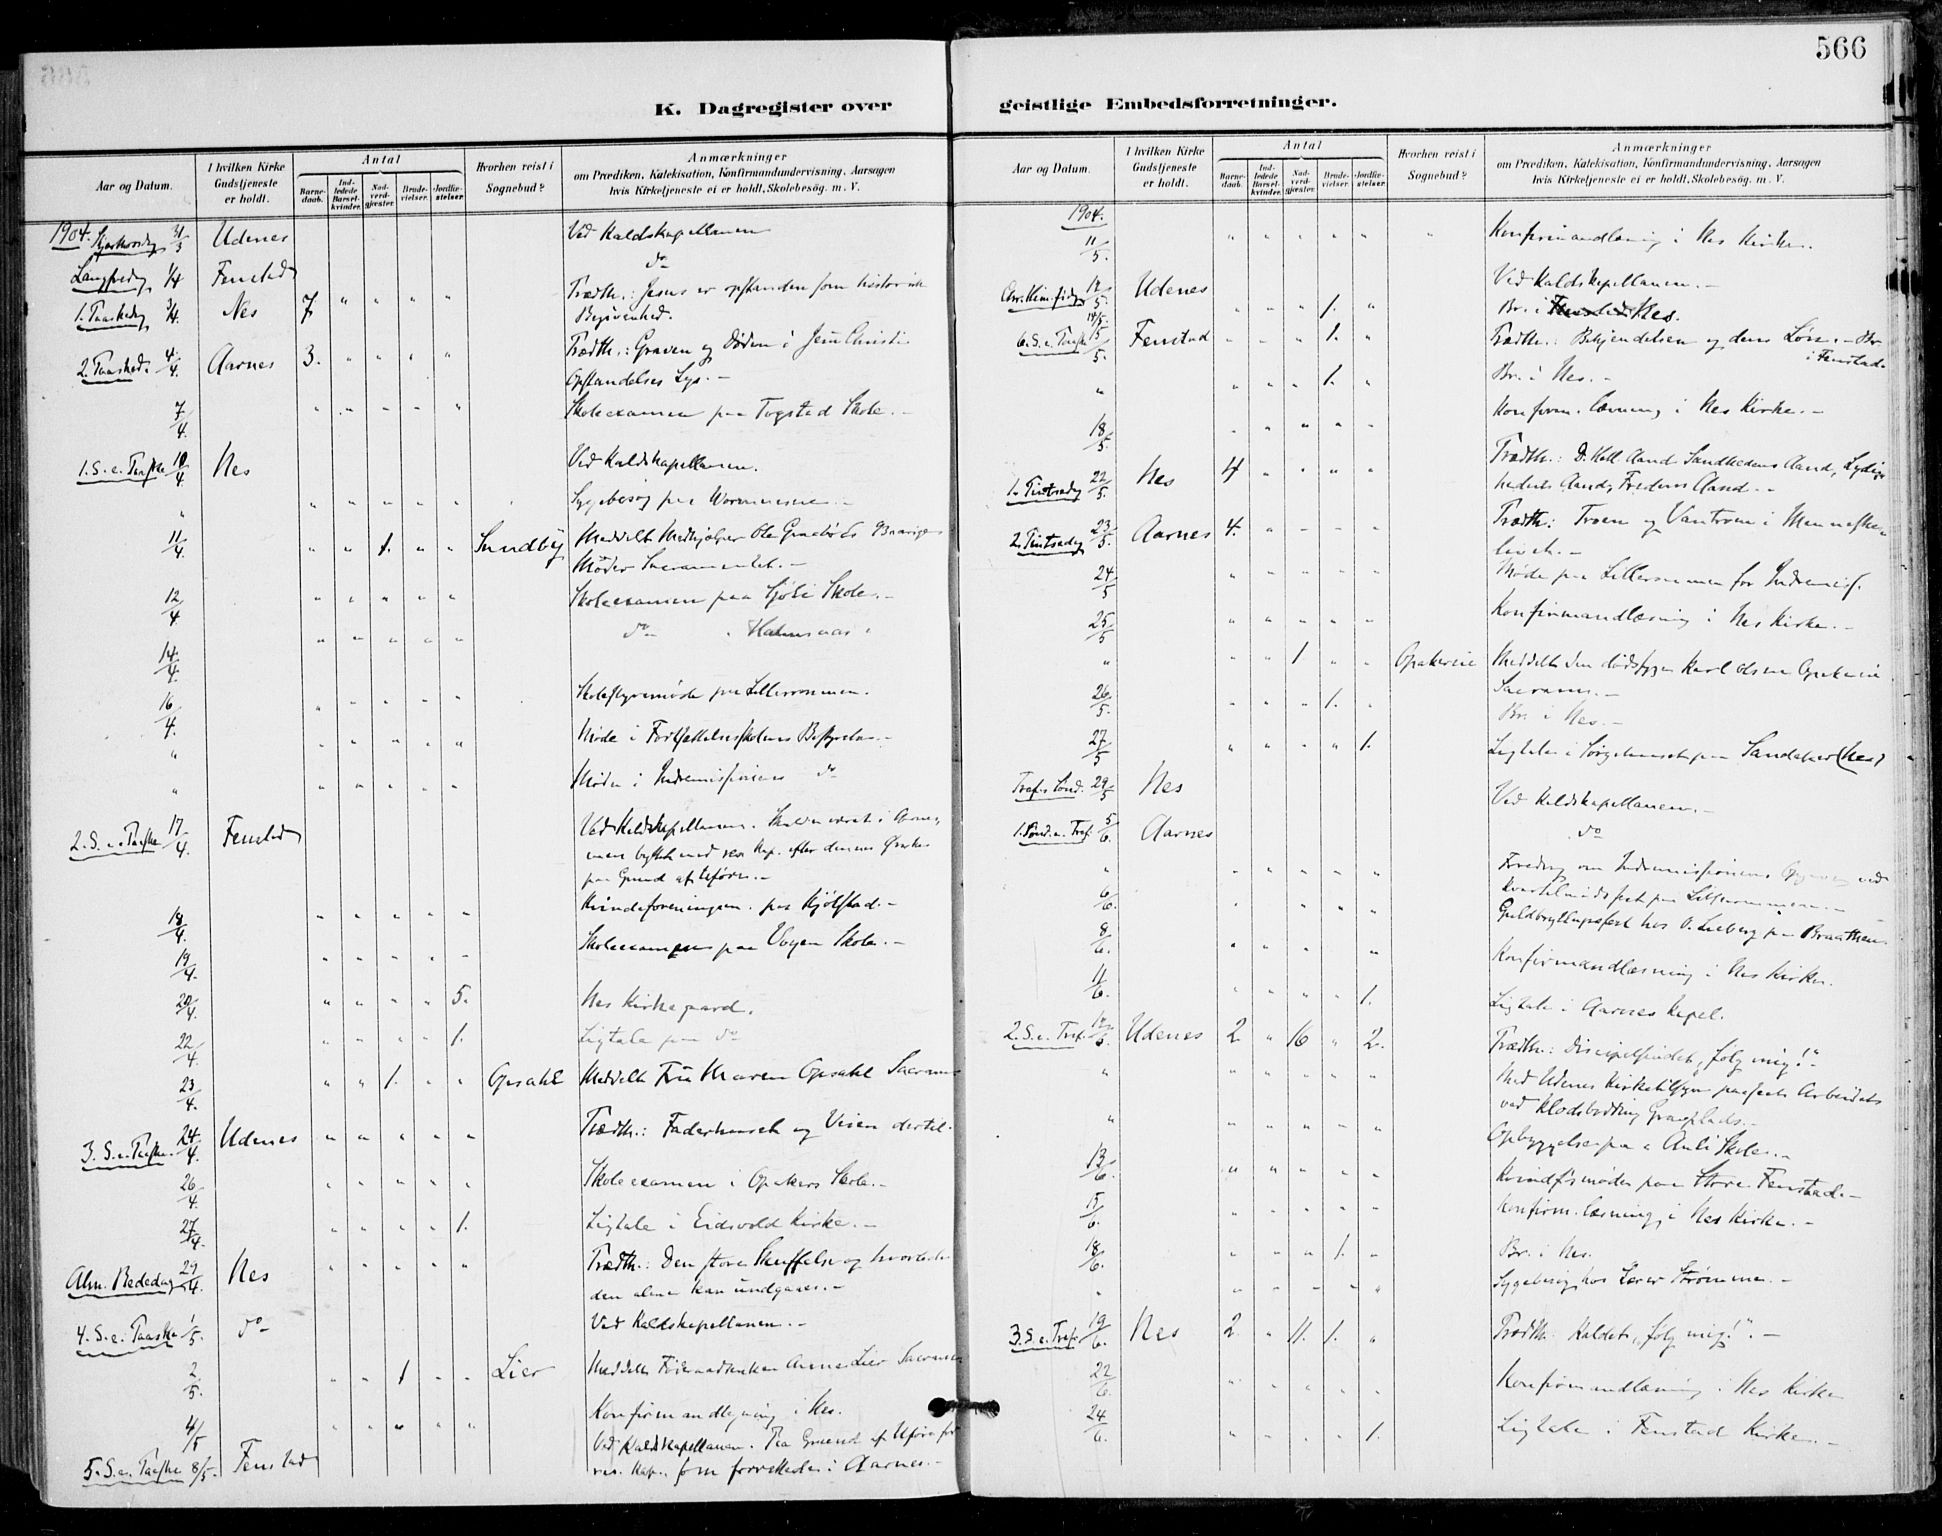 566
K. Dagregister over
Aar og Datum.
I hvilken Kirke Gudstjeneste er holdt.
Antal
Barne-daab.
Ind-ledede Barsel-kvinder.
Nad-verd-gjæster.
Brude-vielser.
Jordfæ-stelser.
Hvorhen reist i Sognebud?
Anmærkninger
om Prædiken, Katekisation, Konfirmandundervisning, Aarsagen
hvis Kirketjeneste ei er holdt, Skolebesøg. m. V.
1904. Skjærtorsdag 31/3 Udenes Ved Kaldskapellanen
Langfredag 1/4 Fenstad do
1. Paaskedag 3/4. Nes 7 " " " " Trædth.: Jesus er opstanden som historisk
Begivenhed.
2. Paasked. 4/4. Aarnes 3. " " " " Trædth.: Graven og Døden i Jesu Christi
Opstandelses Lys. -
7/4. " " " " " Skoleexamen paa Togstad Skole. -
1. S. e. Paaske 10/4 Nes Ved Kaldskapellanen.
" " " " " " Sygebesøg paa
11/4. " " 1. " " Sundby Meddelt Medhjælper Ole
Moder Sacramentet. -
12/4 " " " " " Skoleexamen paa Skole. -
" " " " " do
14/4.
16/4. " " " " " Skolestyremøde paa Lillerommen.
" " " " " " Møde i Fortsættelsesskolens Bestyrelse -
" " " " " " Møde i Indremissionens do
2. S. e. Paaske 17/4. Fenstad Ved Kaldskapellanen. Skulde været i Aarnes,
men byttet med res. Kap. efter dennes Ønske
paa Grund af Uføre. -
18/4. " " " " " Kvindeforeningen paa Kjølstad -
19/4. " " " " " Skoleexamen paa Skole. -
20/4. " " " " 5. Nes Kirkegaard.
22/4. " " " " 1. Ligtale paa do
23/4. " " 1. " " Opsahl Meddelt Fru Maren Opsahl Sacram
3. S. e. Paaske. 24/4. Udenes " " " " " Trædth.: Faderhuset og Veien dertil.
26/4. " " " " " Skoleexamen i Opakers Skole. -
27/4. " " " " 1. Ligtale i Eidsvold Kirke. -
Alm. Bededag 29/4. Nes " " " " " Trædth.: Den store Skuffelse og hvorledes
den alene kan undgaaes. -
4. S. e. Paaske 1/5. do Ved Kaldskapellanen. -
2/5. " " 1 " " Lier Meddelt Anne Lier Sacramen
4/5 " " " " " Konfirmandlesning i Nes.
5. S. e. Paaske 8/5. Fenstad Ved Kaldskapellanen. Paa Grund af Uføre for
res. Kap. som forrettede i Aarnes. -
geistlige Embedsforretninger.
Aar og Datum.
I hvilken Kirke Gudstjeneste er holdt.
Antal
Barne-daab.
Ind-ledede Barsel-kvinder.
Nad-verd-gjæster.
Brude-vielser.
Jordfæ-stelser.
Hvorhen reist i Sognebud?
Anmærkninger
om Prædiken, Katekisation, Konfirmandundervisning, Aarsagen
hvis Kirketjeneste ei er holdt, Skolebesøg. m. V.
1904.
11/5. " " " " " " Konfirmandlæsning i Nes Kirke.
Chr. Him. fdg 12/5. Udenes Ved Kaldskapellanen. -
14/5. " " " 1. " Br. i Nes.
6. S. e. Paaske 15/5. Fenstad " " " 1. " Trædth.: Bekjendelsen og dens Løn. - Br.
i Fenstad.
" " " " 1. " Br. i Nes. -
18/5. " " " " " Konfirm. læsning i Nes Kirke. -
1. Pintsedag 22/5. Nes 4 " " " " Trædth.: D. Hell. Aand Sandhedens Aand, Lydig-
hedens Aand, Fredens Aand. -
2. Pintsedag 23/5. Aarnes 4. " " " " Trædth: Troen og Vantroen i Menneske-
livet. -
24/5 " " " " " Møde paa Lillerommen for Indremis.
25/5 " " " " " Konfirmandlæsning i Nes Kirke. -
" " " 1. " " Opakerie Meddelt den dødssyge Karl Olsen
Sacram. -
26/5. " " " 1. " Br. i Nes. -
27/5 " " " " 1. Ligtale i Sørgehuset paa Sandaker (Nes)
Tref. Sønd. 29/5 Nes Ved Kaldskapellanen. -
1. Sønd. e. Tref. 5/6. Aarnes do
" " " " " " Foredrag om Indremissionens ved
paa Lillerommen. -
6/6. " " " " " Guldbryllupsfest hos O. Lieberg paa Braathen.
8/6. " " " " " Konfirmandlæsning i Nes Kirke.
11/6. " " " " 1. Ligtale i Aarnes Kapel.
2. S. e. Tref. 12/5. Udenes 2 " 16 " 2. Trædth.: Discipelsindet, "følg mig!"
" " " " " " Med Udenes Kirketilsyn Arbeidets
ved Gravplads. -
" " " " " " Opbyggelse paa Auli Skole. -
13/6. " " " " " Kvindfsmøde paa Store Fenstad. -
15/6. " " " " " Konfirm. læsning i Nes Kirke. -
18/6. " " " 1. " Br. i Nes.
" " " " " " Sygebesøg hos Lærer Strømmen. -
3. S. e. Tref. 19/6. Nes 2 " 11. 1. " Trædth: Kaldet, "følg mig!". -
22/6. " " " " " Konfirmandlæsning i Nes Kirke
24/6. " " " " 1. Ligtale i Fenstad Kirke. -